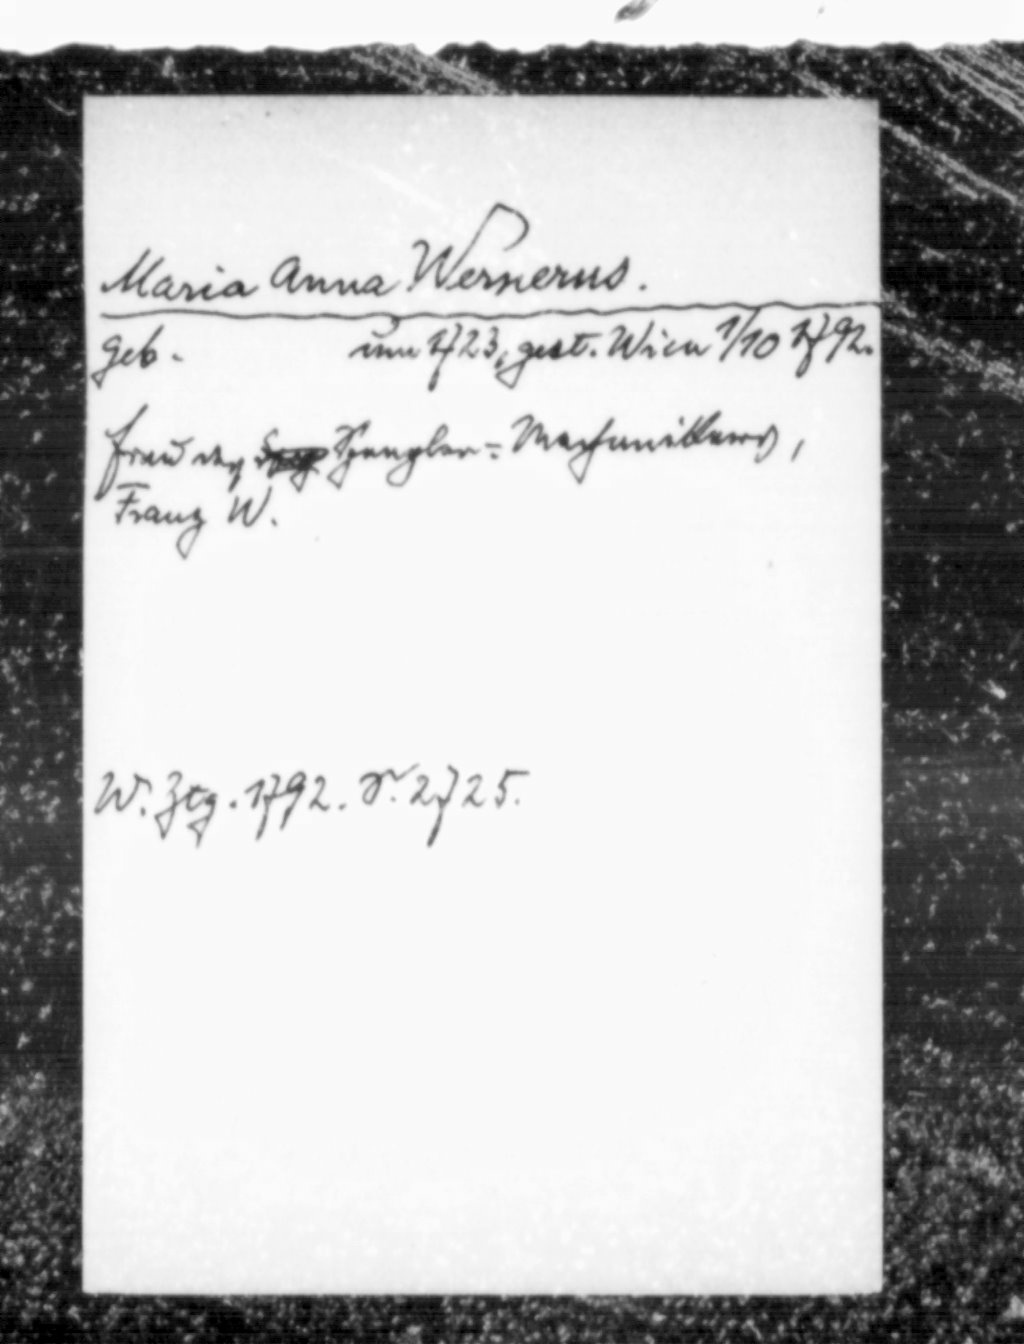 Maria Anna Wernerus.
geb. um 1723, gest. Wien 1/10 1792.
Frau des Spengler-Mechanikers,
Franz W.
W. Ztg. 1792. S. 2725.